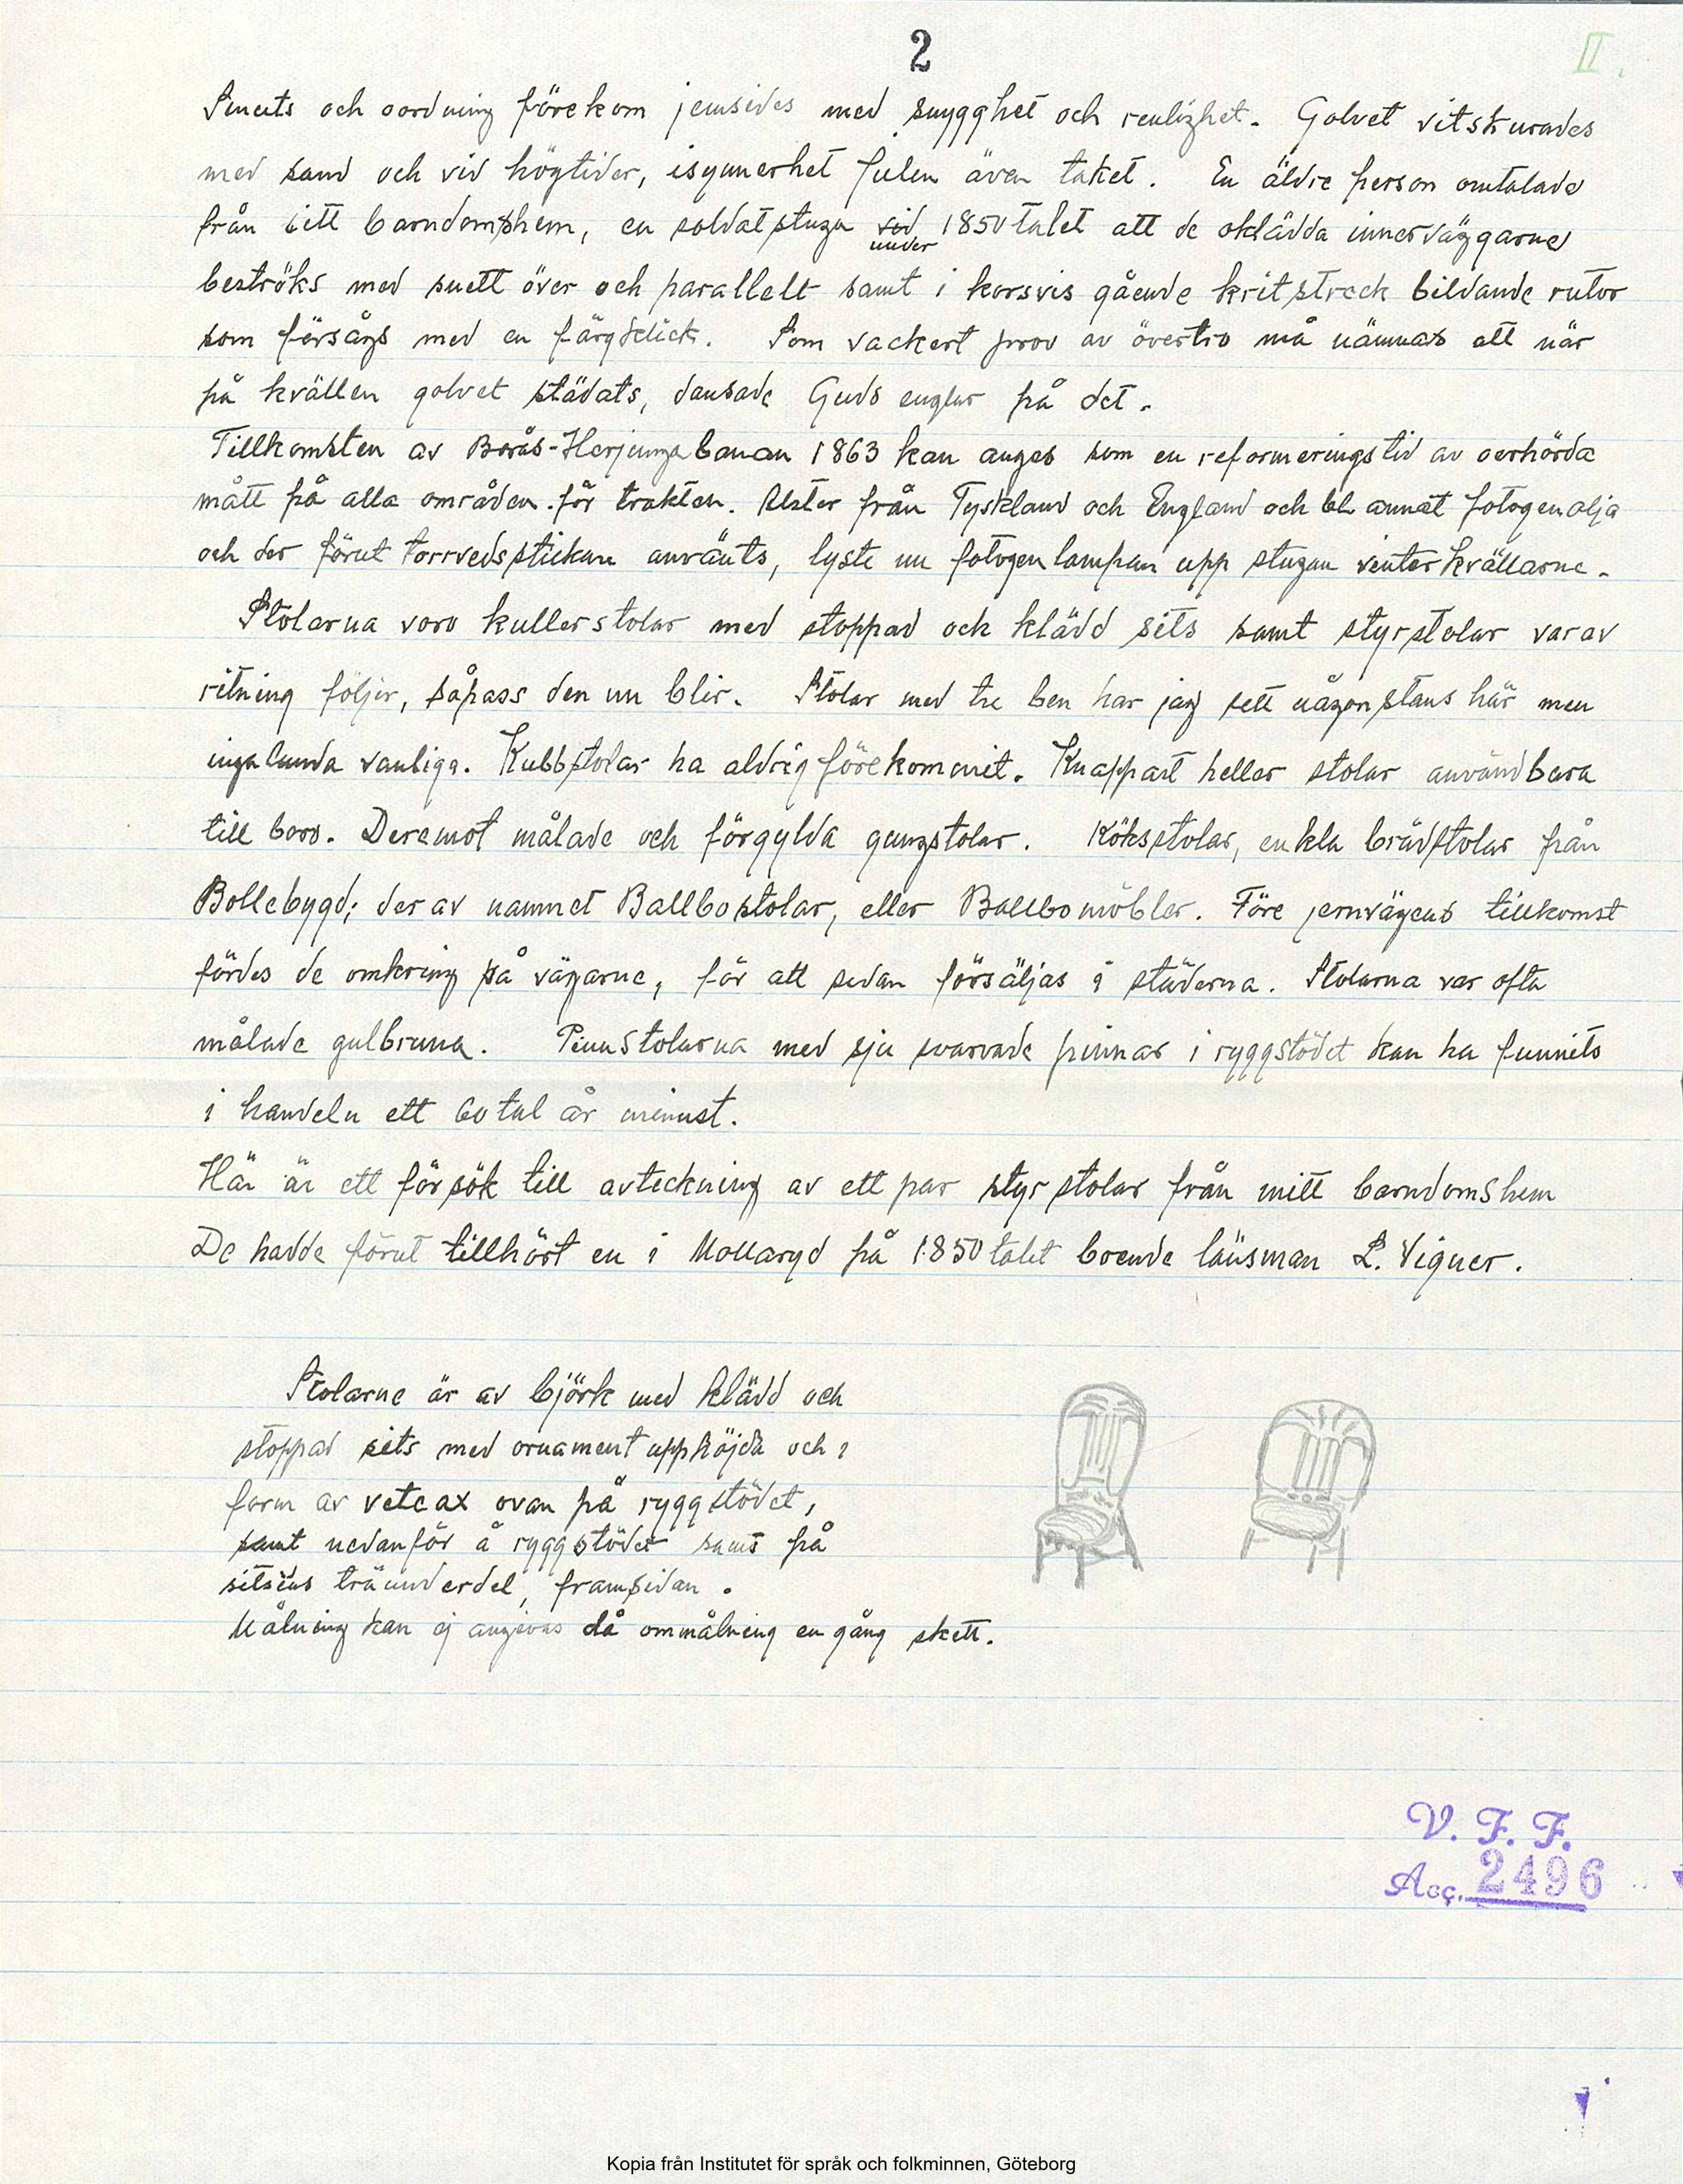 2
II.
Smuts och oordning förekom jemsides med snygghet och renlighet. Golvet vitskurades
med sand och vid högtider, isynnerhet Julen även taket. En äldre person omtalade
från sitt barndomshem, en soldatstuga vid under 1850 talet att de oklädda innerväggarne
beströks med svett över och parallelt samt i korsvis gående kritstreck bildande rutor
som försågs med en färgklick. Som vackert prov av övertro må nämnas att när
på kvällen golvet städats, dansade Guds englar på det.
Tillkomsten av Borås-Herjunga banan 1863 kan anges som en reformeringstid av oerhörda
mått på alla områden för trakten. Alster från Tyskland och England och bl annat fotogenolja
och der förut torrvedsstickan använts, lyste nu fotogenlampan upp stugan vinterkvällarne.
Stolarna voro kullerstolar med stoppad och klädd sits samt styrstolar varav
ritning följer, såpass den nu blir. Stolar med tre ben har jag sett någonstans här men
ingalunda vanliga. Kubbstolar ha aldrig förekommit. Knappast heller stolar användbara
till bord. Deremot målade och förgylda gungstolar. Köksstolar, enkla brädstolar från
Bollebygd; derav namnet Ballbostolar, eller Ballbomöbler. Före jernvägens tillkomst
fördes de omkring på vägarne, för att sedan försäljas i städerna. Stolarna var ofta
målade gulbruna. Pinnstolarna med sju svarvade pinnar i ryggstödet kan ha funnits
i handeln ett 60 tal år minst.
Här är ett försök till avteckning av ett par styrstolar från mitt barndomshem
De hadde förut tillhört en i Mollaryd på 1850 talet boende länsman L. Vigner.
Stolarne är av björk med klädd och
stoppad sits med ornament upphöjda och i
form av veteax ovan på ryggstödet,
samt nedanför å ryggstödet samt på
sitsens träunderdel, framsidan.
Målning kan ej angivas då ommålning en gång skett.
V. F. F.
Acc. 2496
Kopia från Institutet för språk och folkminnen, Göteborg